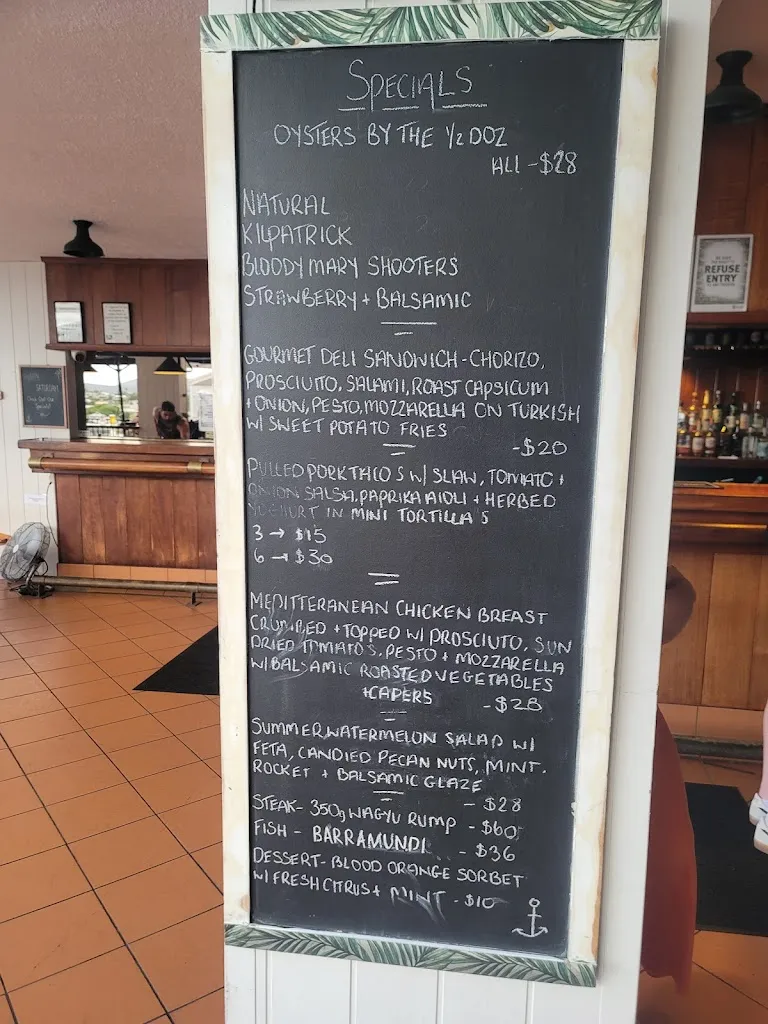 SPECIALS
OYSTERS BY THE 1/2 DOZ
ALL - $28
NATURAL
KILPATRICK
BLOODY MARY SHOOTERS
STRAWBERRY + BALSAMIC
GOURMET DELI SANDWICH - CHORIZO,
PROSCIUTTO, SALAMI, ROAST CAPSICUM
+ ONION, PESTO, MOZZARELLA ON TURKISH
W/ SWEET POTATO FRIES
- $20
PULLED PORK TACO S W/ SLAW, TOMATO +
ONION SALSA, PAPRIKA AIOLI + HERBED
YOGHURT IN MINI TORTILLA S
3 → $15
6 → $30
MEDITTERANEAN CHICKEN BREAST
CRUMBED + TOPPED W/ PROSCIUTO, SUN
DRIED TOMATO S, PESTO + MOZZARELLA
W/ BALSAMIC ROASTED VEGETABLES
+ CAPERS - $28
SUMMER WATERMELON SALAD W/
FETA, CANDIED PECAN NUTS, MINT,
ROCKET + BALSAMIC GLAZE
- $28
STEAK - 350g WAGYU RUMP - $60
FISH - BARRAMUNDI - $36
DESSERT - BLOOD ORANGE SORBET
W/ FRESH CITRUS + MINT - $10
SATURDAY
REFUSE
ENTRY